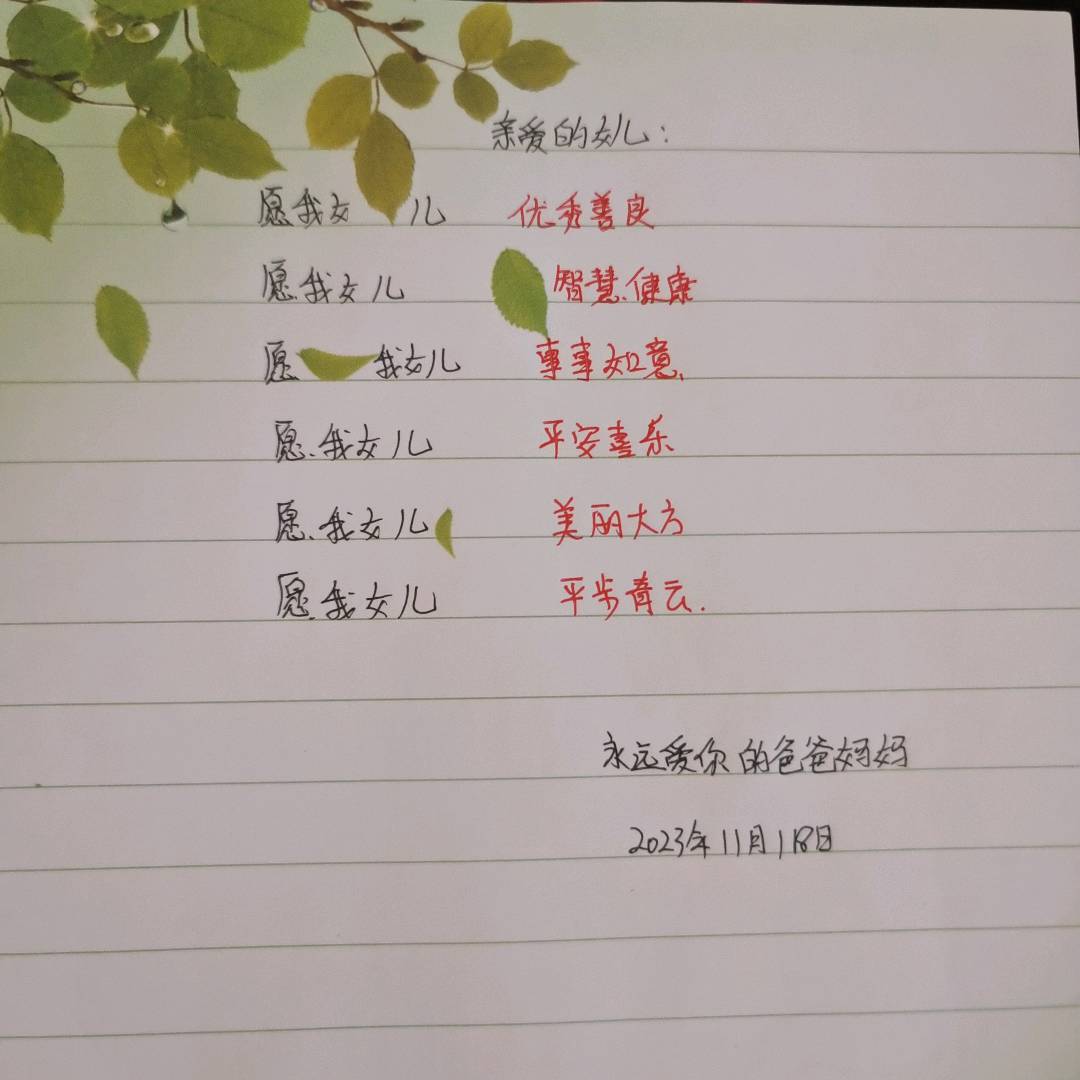 亲爱的女儿：
愿我女儿 优秀善良
愿我女儿 智慧健康
愿我女儿 事事如意
愿我女儿 平安喜乐
愿我女儿 美丽大方
愿我女儿 平步青云.
永远爱你的爸爸妈妈
2023年11月18日